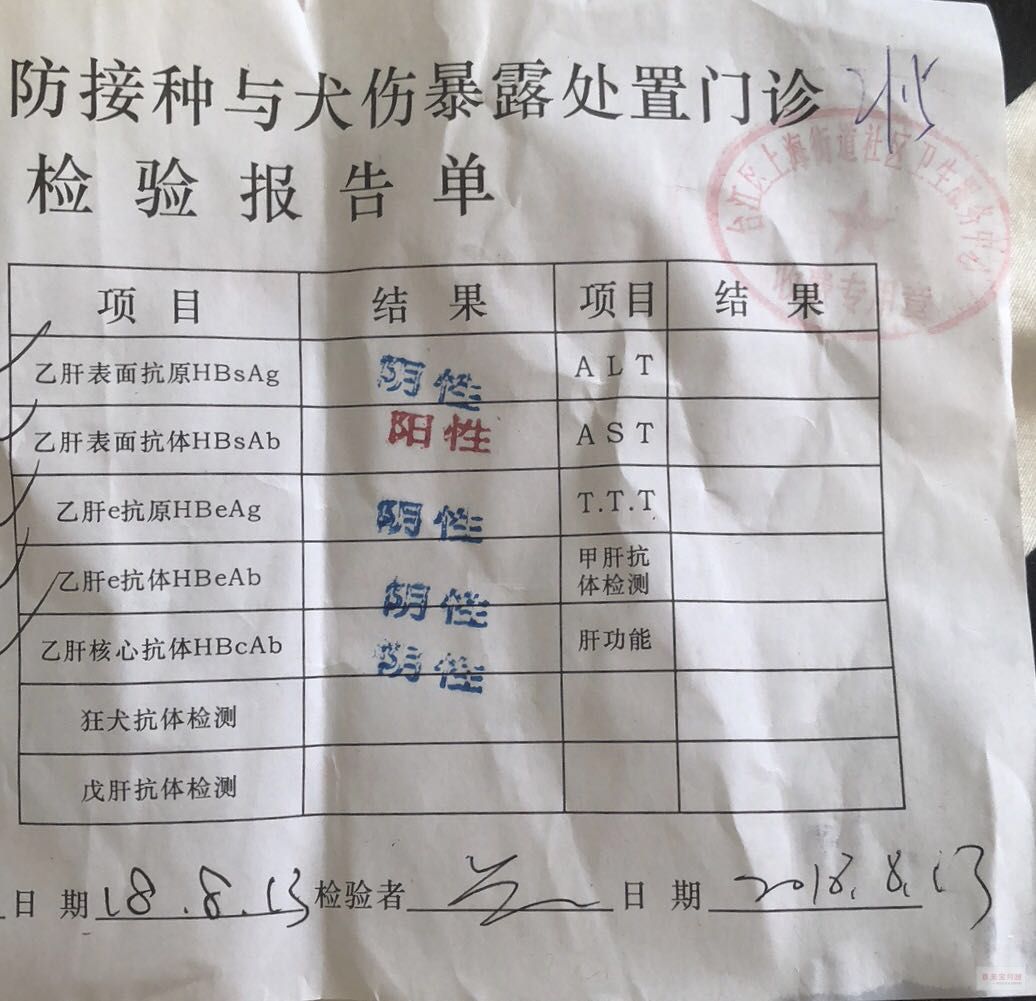 防接种与犬伤暴露处置门诊
检验报告单
台江区上海街道社区卫生服务中心
收费专用章
项目 结果 项目 结果
乙肝表面抗原HBsAg 阴性 ALT
乙肝表面抗体HBsAb 阳性 AST
乙肝e抗原HBeAg 阴性 T.T.T
乙肝e抗体HBeAb 阴性 甲肝抗
体检测
乙肝核心抗体HBcAb 阴性 肝功能
狂犬抗体检测
戊肝抗体检测
日期 18.8.13 检验者 日期 2018.8.13